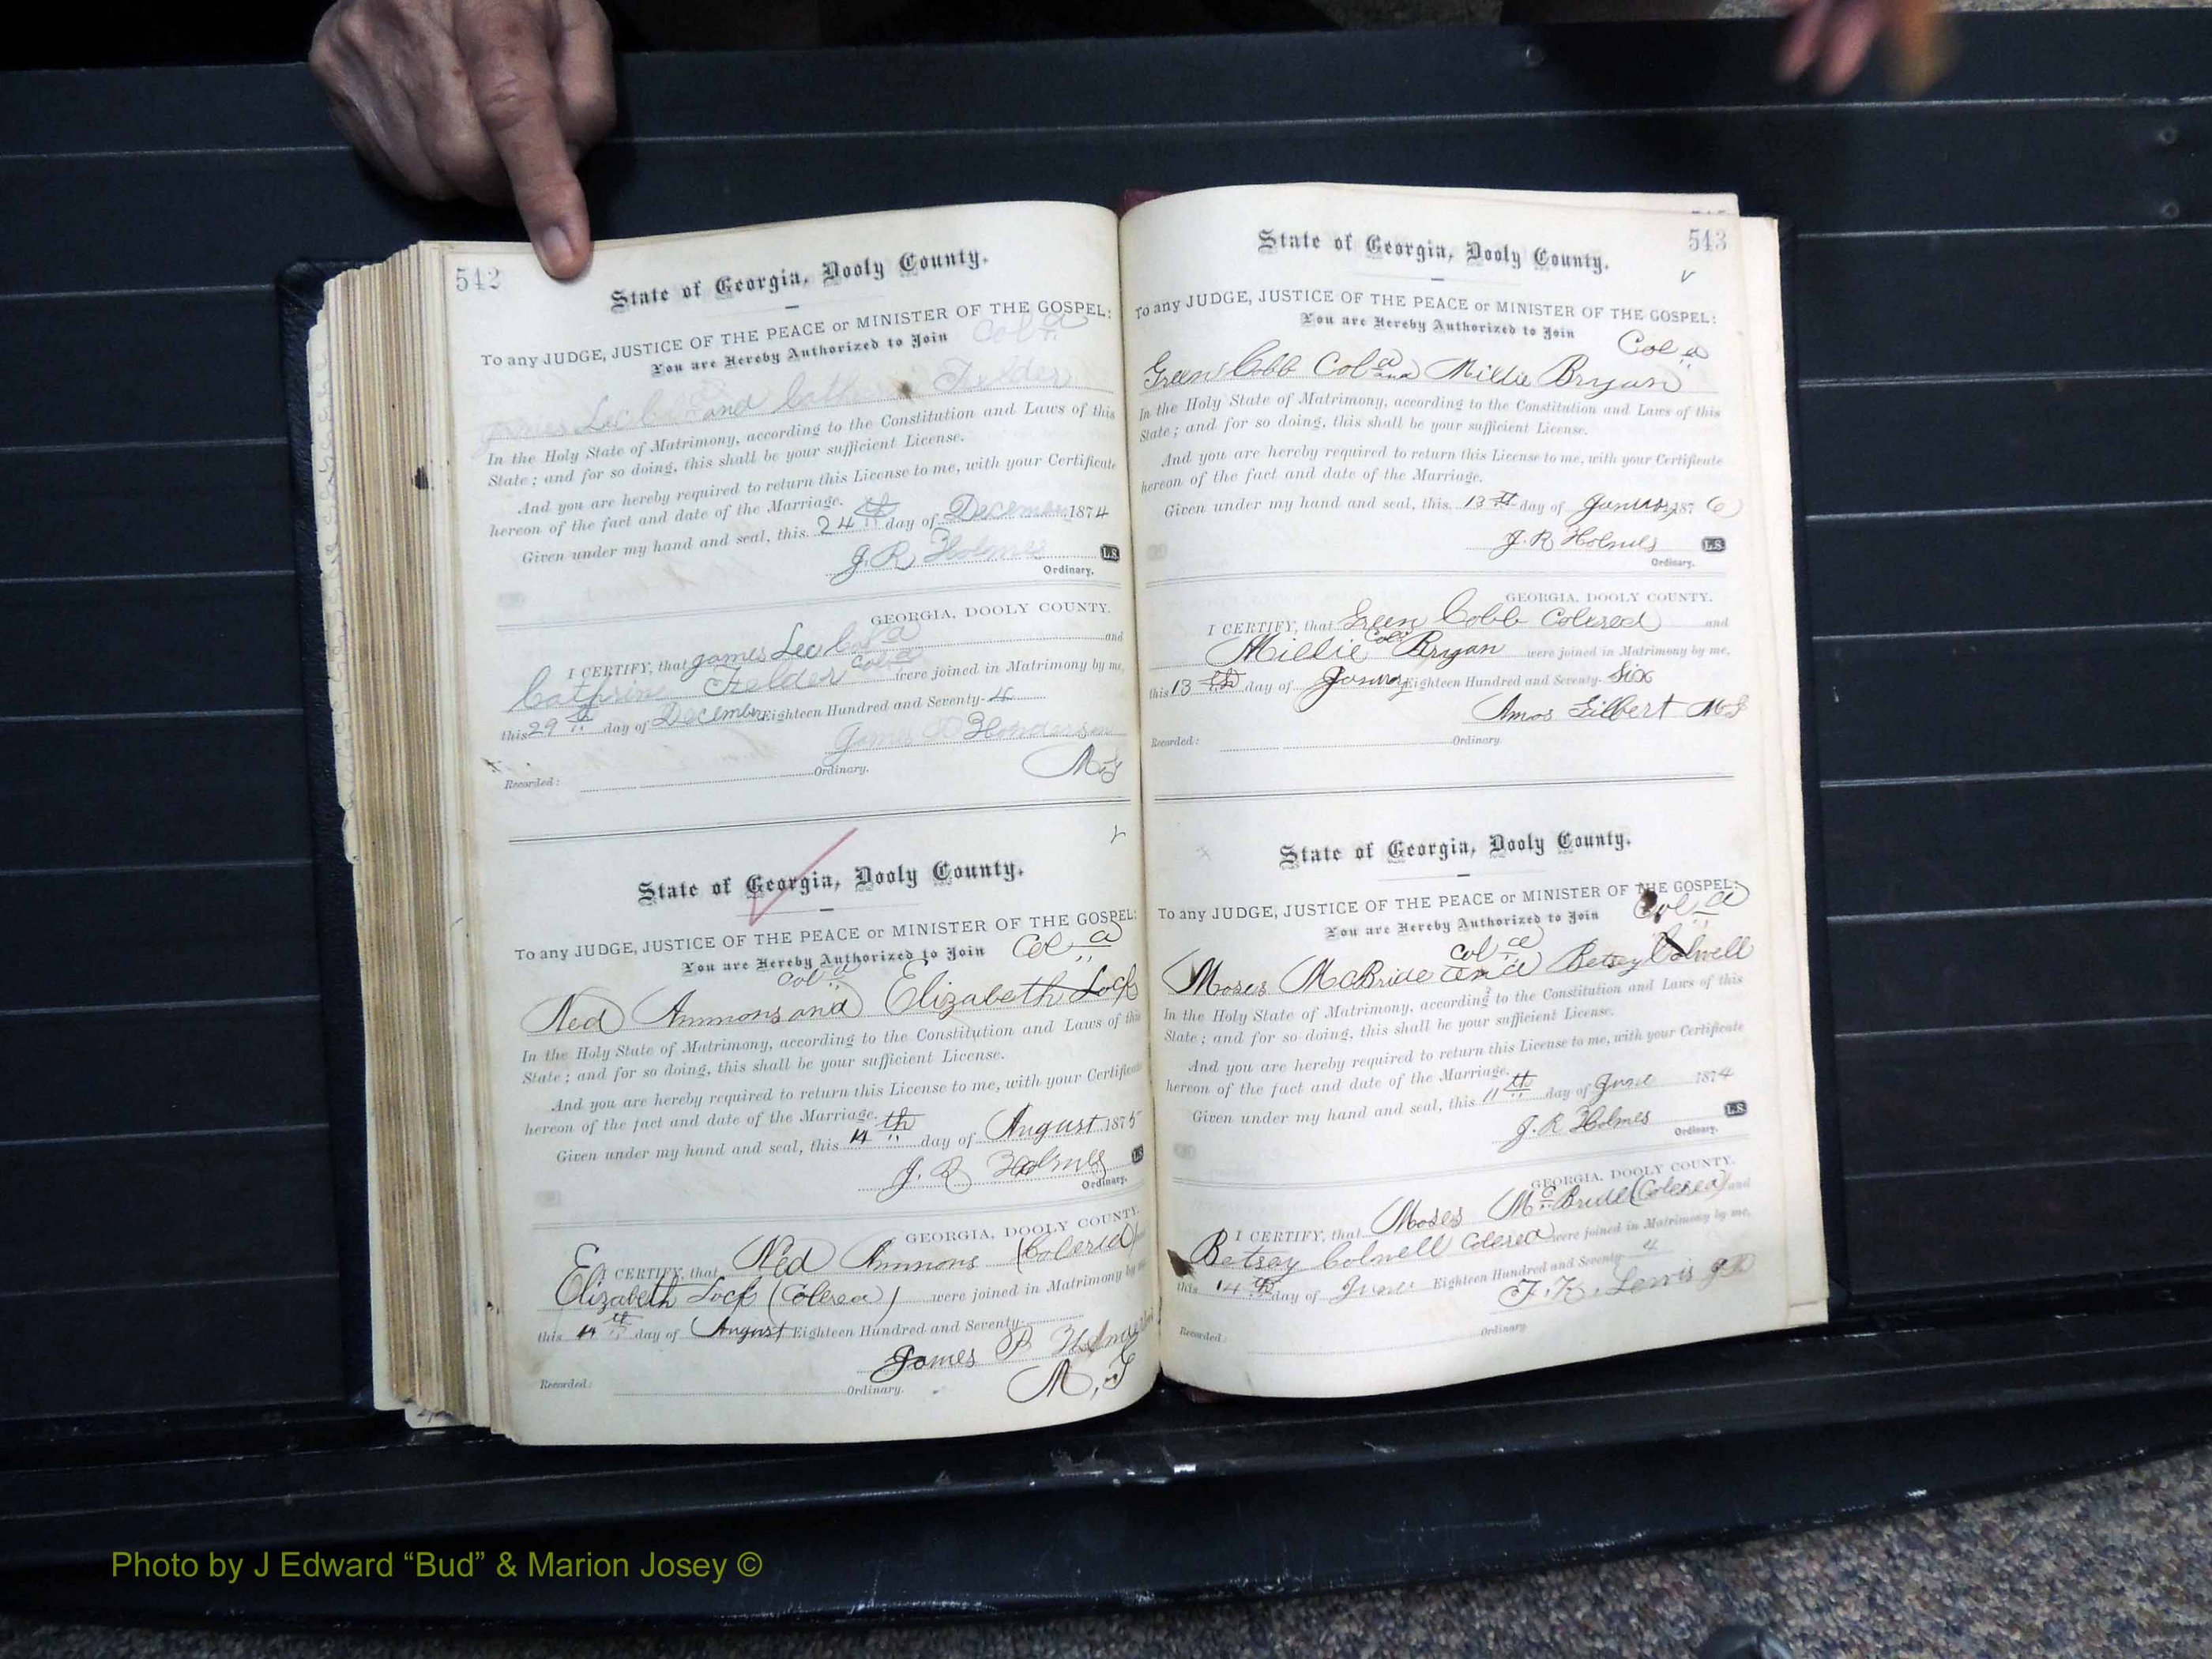 542
State of Georgia, Dooly County.
To any JUDGE, JUSTICE OF THE PEACE or MINISTER OF THE GOSPEL:
You are Hereby Authorized to Join Col.d
James Lee Col and Fielder
In the Holy State of Matrimony, according to the Constitution and Laws of this
State; and for so doing, this shall be your sufficient License.
And you are hereby required to return this License to me, with your Certificate
hereon of the fact and date of the Marriage.
Given under my hand and seal, this 24th day of December 1874
J. R Holmes L.S.
Ordinary.
GEORGIA, DOOLY COUNTY.
I CERTIFY, that James Lee Col.d and
Cathrine Fielder Col.d were joined in Matrimony by me,
this 29th day of December Eighteen Hundred and Seventy-4
James D Henderson
Recorded: Ordinary. M.G
State of Georgia, Dooly County.
To any JUDGE, JUSTICE OF THE PEACE or MINISTER OF THE GOSPEL:
You are Hereby Authorized to Join Col.d
Col.d
Ned Ammons and Elizabeth Lock
In the Holy State of Matrimony, according to the Constitution and Laws of this
State; and for so doing, this shall be your sufficient License.
And you are hereby required to return this License to me, with your Certificate
hereon of the fact and date of the Marriage.
Given under my hand and seal, this 14th day of August 1875
J. R Holmes L.S.
Ordinary.
GEORGIA, DOOLY COUNTY.
I CERTIFY, that Ned Ammons (Colered)
Elizabeth Lock (Colered) were joined in Matrimony by
this 14th day of August Eighteen Hundred and Seventy-
James R Holmes
Recorded: Ordinary. M.G
543
State of Georgia, Dooly County.
To any JUDGE, JUSTICE OF THE PEACE or MINISTER OF THE GOSPEL:
You are Hereby Authorized to Join Col.d
Green Cobb Col.d and Millie Bryan
In the Holy State of Matrimony, according to the Constitution and Laws of this
State; and for so doing, this shall be your sufficient License.
And you are hereby required to return this License to me, with your Certificate
hereon of the fact and date of the Marriage.
Given under my hand and seal, this 13th day of January 1876
J. R Holmes L.S.
Ordinary.
GEORGIA, DOOLY COUNTY.
I CERTIFY, that Green Cobb Colered and
Millie Col.d Bryan were joined in Matrimony by me,
this 13th day of January Eighteen Hundred and Seventy-Six
Amos Gilbert M G
Recorded: Ordinary.
State of Georgia, Dooly County.
To any JUDGE, JUSTICE OF THE PEACE or MINISTER OF THE GOSPEL:
You are Hereby Authorized to Join Col.d
Col.d
Moses McBride and Betsey Colwell
In the Holy State of Matrimony, according to the Constitution and Laws of this
State; and for so doing, this shall be your sufficient License.
And you are hereby required to return this License to me, with your Certificate
hereon of the fact and date of the Marriage.
Given under my hand and seal, this 11th day of June 1874
J. R Holmes L.S.
Ordinary.
GEORGIA, DOOLY COUNTY.
I CERTIFY, that Moses McBride (Colered) and
Betsey Colwell Colered were joined in Matrimony by me,
this 14th day of June Eighteen Hundred and Seventy-4
F. K. Lewis J P
Recorded: Ordinary.
Photo by J Edward “Bud” & Marion Josey ©